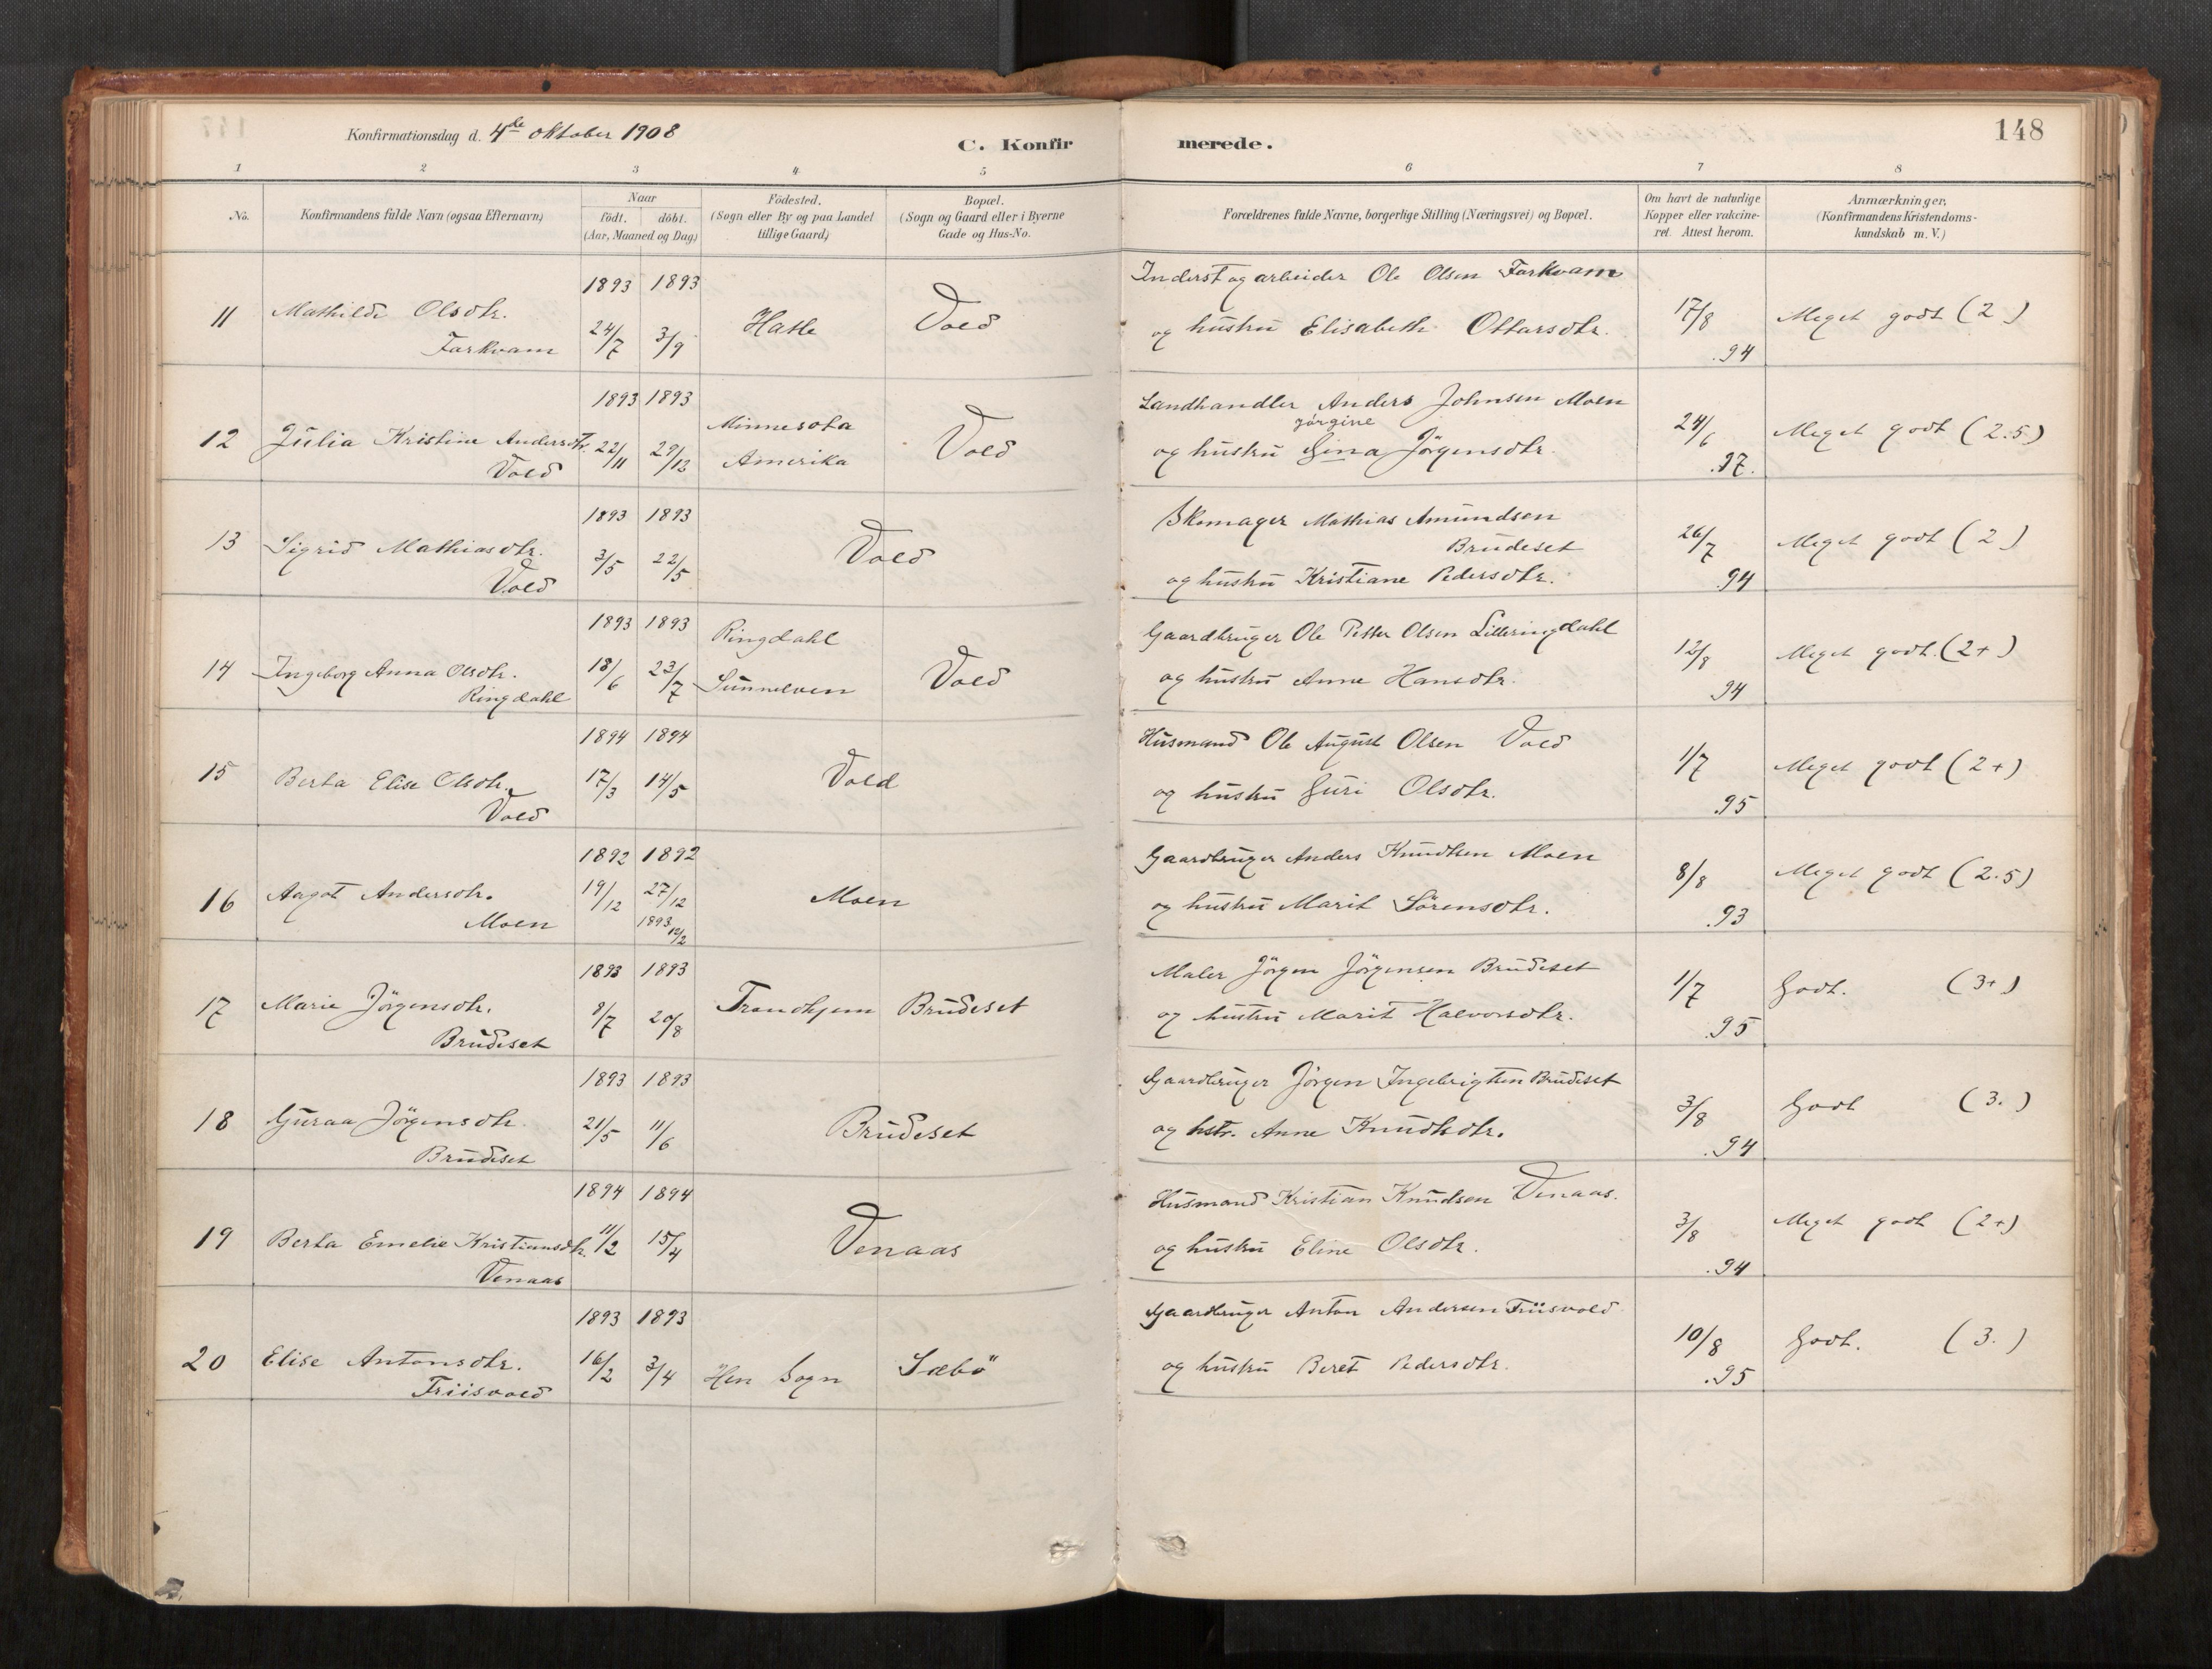 Konfirmationsdag d. 4de oktober 1908
C. Konfirmerede.
148
1 2 3 4 5 6 7 8
No.
Konfirmandens fulde Navn (ogsaa Efternavn)
Naar
födt. döbt.
(Aar, Maaned og Dag)
Födested.
(Sogn eller By og paa Landet
tillige Gaard)
Bopæl.
(Sogn og Gaard eller i Byerne
Gade og Hus-No.
Forældrenes fulde Navne, borgerlige Stilling (Næringsvei) og Bopæl.
Om havt de naturlige
Kopper eller vakcine-
ret. Attest herom.
Anmærkninger,
(Konfirmandens Kristendoms-
kundskab m. V.)
1893 1893
11 Mathilde Olsdtr.
Farkvam
24/7 3/9
Hatle
Vold
Inderst og arbeider Ole Olsen Farkvam
og hustru Elisabeth Ottarsdtr.
17/8
.94
Meget godt (2)
1893 1893
12 Julia Kristine Andersdtr.
Vold
22/11 29/12
Minnesota
Amerika
Vold
Landhandler Anders Johnsen Moen
Jörgine
og hustru Gina Jörgensdtr.
24/6
.97.
Meget godt (2.5)
1893 1893
13 Sigrid Mathiasdtr.
Vold
3/5 22/5
Vold
Skomager Mathias Amundsen
Brudeset
og hustru Kristiane Pedersdtr.
26/7
.94
Meget godt (2)
1893 1893
14 Ingeborg Anna Olsdtr.
Ringdahl
18/6 23/7
Ringdahl
Sunnelven
Vold
Gaardbruger Ole Petter Olsen Litleringdahl
og hustru Anne Hansdtr.
12/8
94
Meget godt. (2+)
1894 1894
15 Berta Elise Olsdtr.
Vold
17/3 14/5
Vold
Husmand Ole August Olsen Vold
og hustru Guri Olsdtr.
1/7
.95
Meget godt (2+)
1892 1892
16 Aagot Andersdtr.
Moen
19/12 27/12
1893 12/2
Moen
Gaardbruger Anders Knudtsen Moen
og hustru Marit Sörensdtr.
8/8
.93
Meget godt (2.5)
1893 1893
17 Marie Jörgensdtr.
Brudeset
8/7 20/8
Trondhjem
Brudeset
Maler Jörgen Jörgensen Brudeset
og hustru Marit Halvorsdtr.
1/7
.95
Godt. (3+)
1893 1893
18 Guraa Jörgensdtr.
Brudeset
21/5 11/6
Brudeset
Gaardbruger Jörgen Ingebrigtsen Brudeset
og hstr. Anne Knudtsdtr.
3/8
.94
Godt (3.)
1894 1894
19 Berta Emelie Kristiansdtr.
Venaas
11/2 15/4
Venaas
Husmand Kristian Knudsen Venaas.
og hustru Eline Olsdtr.
3/8
.94
Meget godt (2+)
1893 1893
20 Elise Antonsdtr.
Friisvold
16/2 3/4
Hen Sogn
Sæbö
Gaardbruger Anton Andersen Friisvold
og hustru Beret Pedersdtr.
10/8
.95
Godt. (3.)